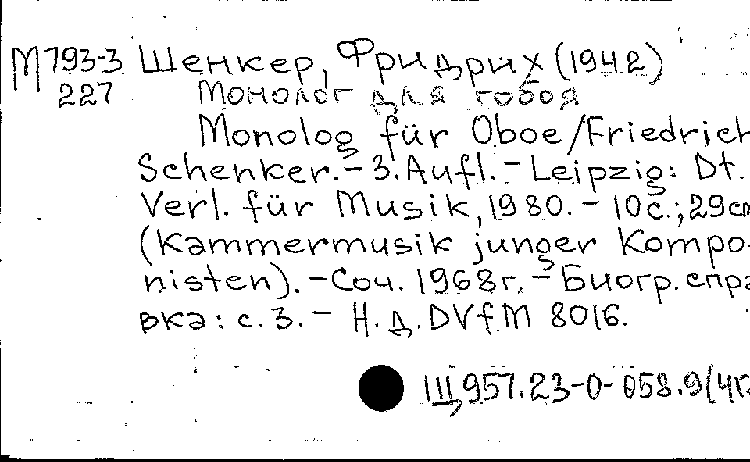 М793-3 Шенкер, Фридрих (1942)
227 Монолог для гобоя
Monolog für Oboe/Friedrich
Schenker.-3.Aufl.-Leipzig: Dt.
Verl. für Musik, 1980.-10с.; 29cm
(Kammermusik junger Kompo-
nisten).-Соч. 1968г.-Биогр.спра
вка: с.3.- Н.д. DVfM 8016.
Щ957.23-0-058.9(4